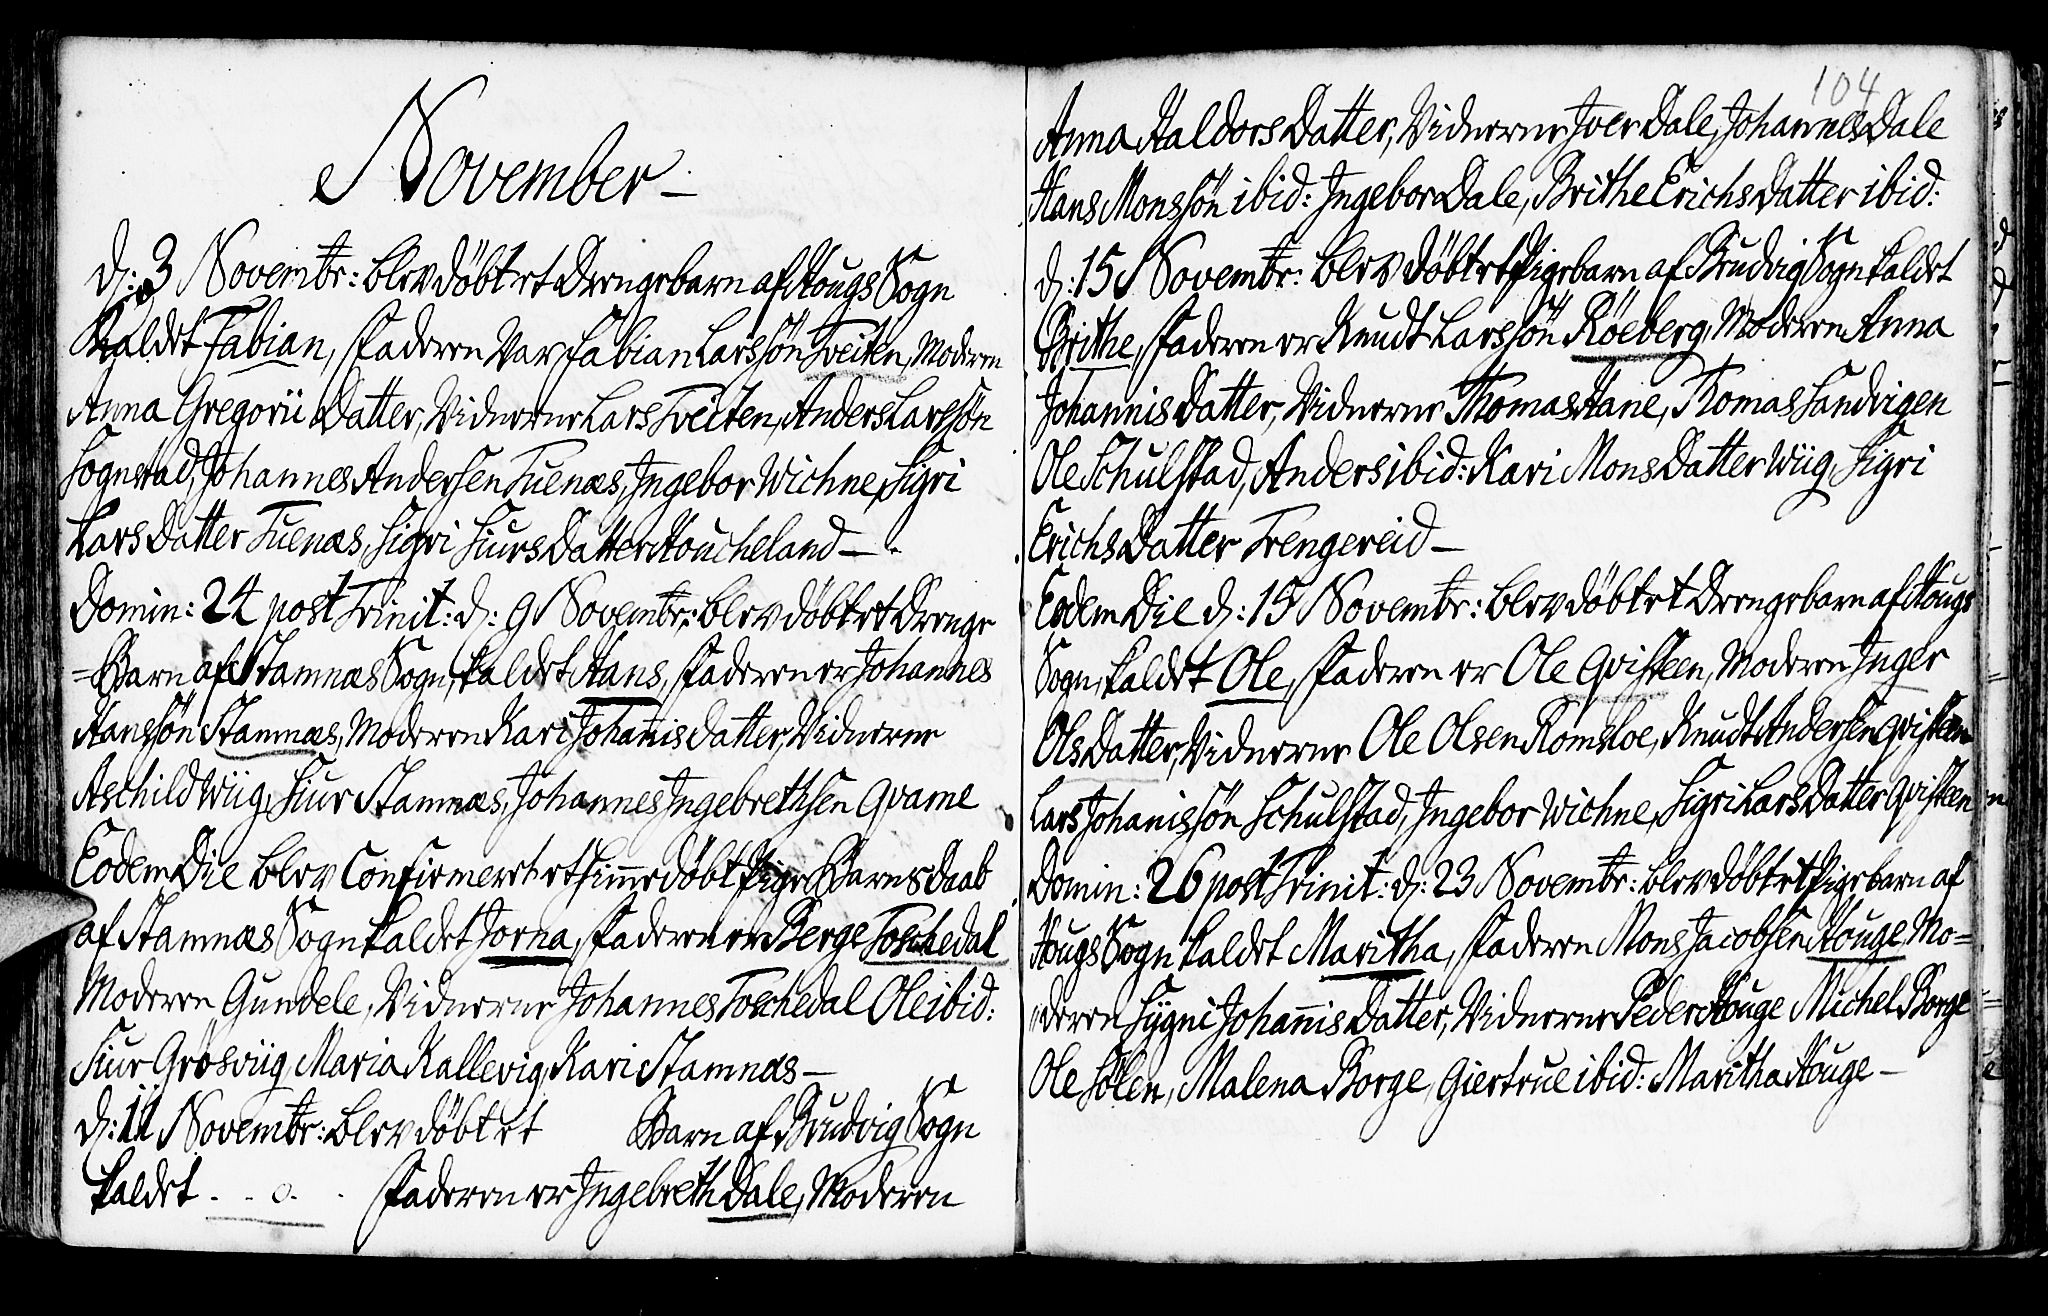 November –
d: 3 Novembr: blev döbt et Drengebarn af Hougs Sogn
Kaldet Fabian, Faderen Var Fabian Larssön Tveiten, Moderen
Anna Gregorii Datter, Vidnerne Lars Tveiten, Anders Larssön
Sognstad, Johannes Andersen Fuenæs, Ingebor Wichne, Sigri
Lars Datter Fuenæs, Sigri Siurs Datter Houcheland –
Domin: 24 post Trinit: d: 9 Novembr: blev döbt et Drenge
=Barn af Stamnæs Sogn, kaldet Hans, Faderen er Johannes
Hanssön Stamnæs, Moderen Kari Johannis Datter, Vidnerne
Aschild Wiig, Siur Stamnæs, Johannes Ingebrethsen Qvame
Eodem Die blev Confirmeret et hiemme döbt Pige Barns Daab
af Stamnæs Sogn kaldet Jorna, Faderen er Berge Toschedal
Moderen Gundele, Vidnerne Johannes Toschedal Ole ibid:
Siur Grosviig, Maria Kallevig, Kari Stamnæs –
d: 11 Novembr: blev döbt et Barn af Brudvig Sogn
kaldet . . o . . Faderen er Ingebreth Dale, Moderen
104
Anna Haldors Datter, Vidnerne Iver Dale, Johannes Dale
Hans Monssön ibid: Ingebor Dale, Brithe Erichs Datter ibid:
d: 15 Novembr: blev döbt et Pigebarn af Brudvig Sogn kaldet
Brithe, Faderen er Knudt Larssön Röeberg, Moderen Anna
Johannis Datter, Vidnerne Thomas Hane, Thomas Sandvigen
Ole Schulstad, Anders ibid: Kari Mons Datter Wiig, Sigri
Erichs Datter Trengereid –
Eodem Die d: 15 Novembr: blev döbt et Drengebarn af Hougs
Sogn, kaldet Ole, Faderen er Ole Qvisteen, Moderen Inger
Ols Datter, Vidnerne Ole Olsen Romsloe, Knudt Andersen Qvisteen
Lars Johanissön Schulstad, Ingebor Wichne, Sigri Lars Datter Qvisteen
Domin: 26 post Trinit: d: 23 Novembr: blev döbt et Pigebarn af
Hougs Sogn kaldet Maritha, Faderen Mons Jacobsen Houge, Mo=
"deren Sygni Johannis Datter, Vidnerne Peder Houge Michel Borge
Ole Sölen, Malena Borge, Giertrue ibid: Maritha Houge –